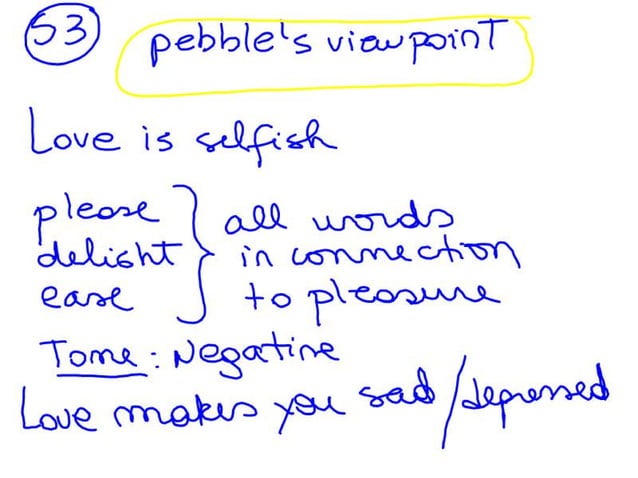 53 pebble's viewpoint
Love is selfish
please
delight
ease
all words
in connection
to pleasure
Tone: Negative
Love makes you sad/depressed